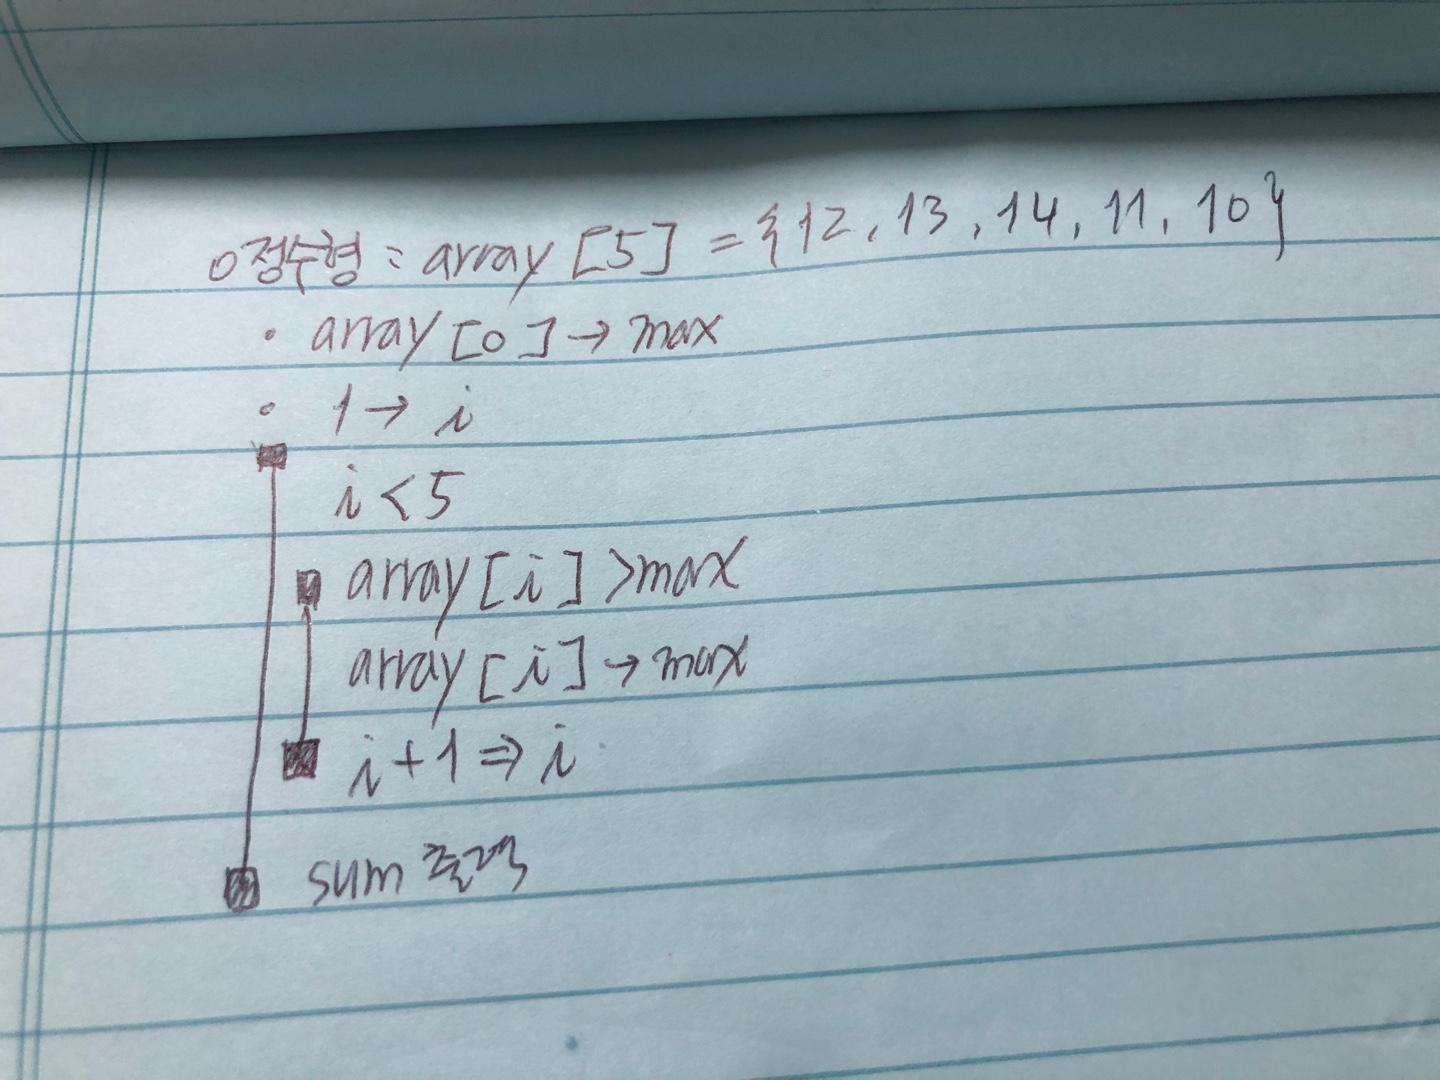 ○정수형 : array [5] = {12, 13, 14, 11, 10}
• array [0] → max
◦ 1 → i
i < 5
array [i] > max
array [i] → max
i + 1 ⇒ i
sum 출력